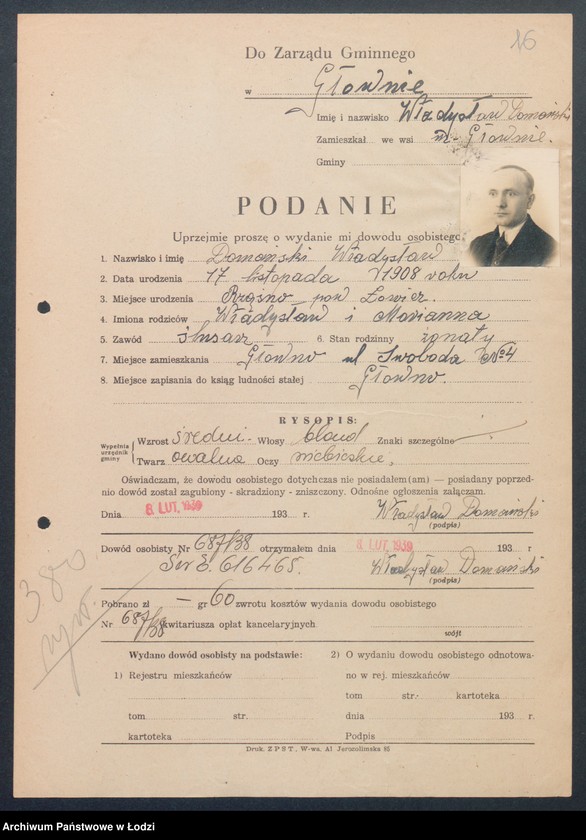 16
Do Zarządu Gminnego
w Głownie
Imię i nazwisko Władysław Domański
Zamieszkał we wsi m. Głownie.
Gminy
PODANIE
Uprzejmie proszę o wydanie mi dowodu osobistego
1. Nazwisko i imię Domański Władysław
2. Data urodzenia 17 listopada 1908 roku
3. Miejsce urodzenia pow Łowicz.
4. Imiona rodziców Władysław i Marianna
5. Zawód ślusarz 6. Stan rodzinny żonaty
7. Miejsce zamieszkania Głowno ul Swoboda №4
8. Miejsce zapisania do ksiąg ludności stałej Głowno.
RYSOPIS:
Wypełnia urzędnik gminy
Wzrost średni Włosy blond Znaki szczególne
Twarz owalna Oczy niebieskie,
Oświadczam, że dowodu osobistego dotychczas nie posiadałem(am) — posiadany poprzed-
nio dowód został zagubiony - skradziony - zniszczony. Odnośne ogłoszenia załączam.
Dnia 8 LUT. 1939 193 r. Władysław Domański
(podpis)
Dowód osobisty Nr 687/38 otrzymałem dnia 8 LUT. 1939 193 r.
Ser E. 616465. Władysław Domański
(podpis)
380
Pobrano zł — gr 60 zwrotu kosztów wydania dowodu osobistego
Nr 687/38 kwitariusza opłat kancelaryjnych
wójt
Wydano dowód osobisty na podstawie:
1) Rejestru mieszkańców
tom str.
kartoteka
2) O wydaniu dowodu osobistego odnotowa-
no w rej. mieszkańców
tom str.- kartoteka
dnia 193 r.
Podpis
Druk. ZPST, W-wa, Al Jerozolimska 85
Archiwum Państwowe w Łodzi